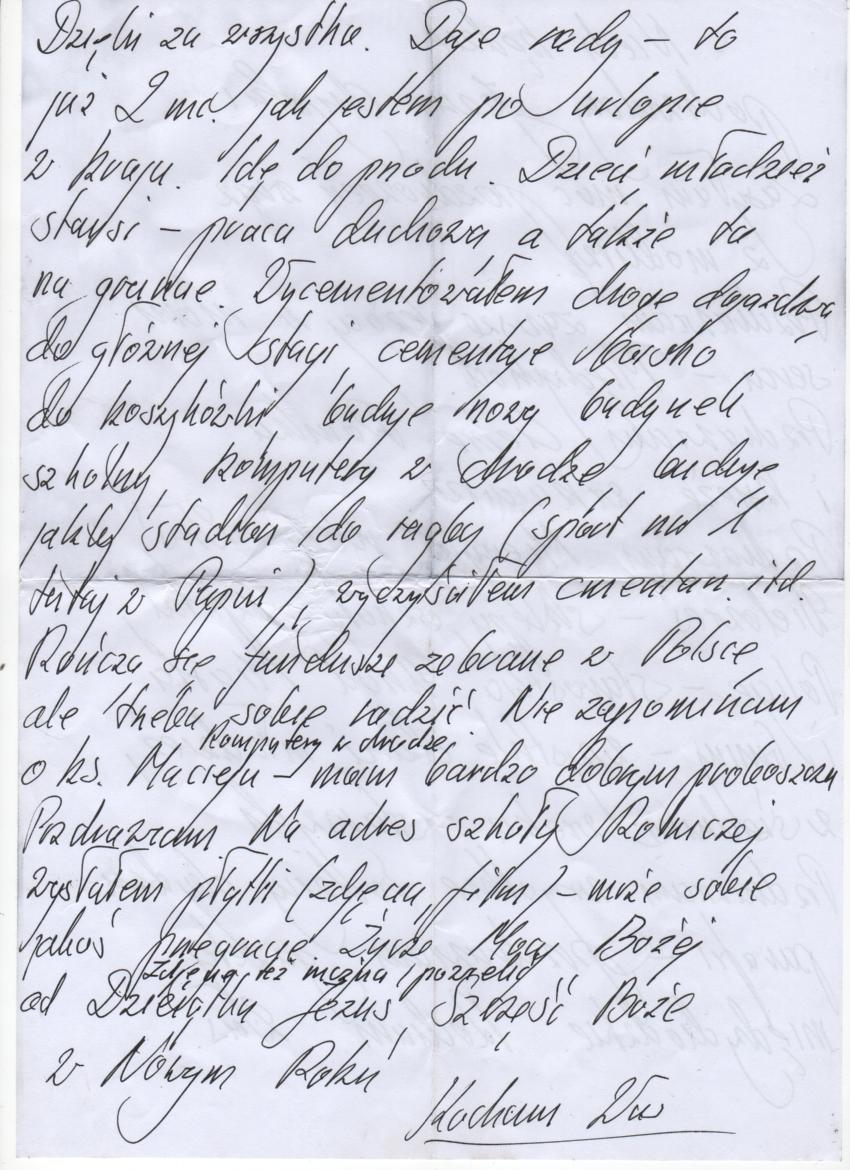 Dzięki za wszystko. Daję rady – to
już 2 mc. jak jestem po urlopie
w kraju. Idę do przodu. Dzieci, młodzież
starsi – praca duchowa, a także ta
na gruncie. Wycementowałem drogę dojazdową
do głównej stacji, cementuję boisko
do koszykówki, buduję nowy budynek
szkolny, komputery w drodze, buduję
jakby stadion do ragby (sport nr 1
tutaj w Papui), wyczyściłem cmentarz. itd.
Kończą się fundusze zebrane w Polsce,
ale trzeba sobie radzić. Nie zapominam
Komputery w drodze.
o ks. Macieju – mam bardzo dobrym proboszczu
Pozdrawiam Na adres szkoły Rolniczej
wysłałem płytki (zdjęcia, film) – może sobie
jakoś przegracie. Życzę Mocy Bożej
Zdjęcia też można i
od Dzieciątka Jezus Szczęść Boże
w Nowym Roku
Kocham Was